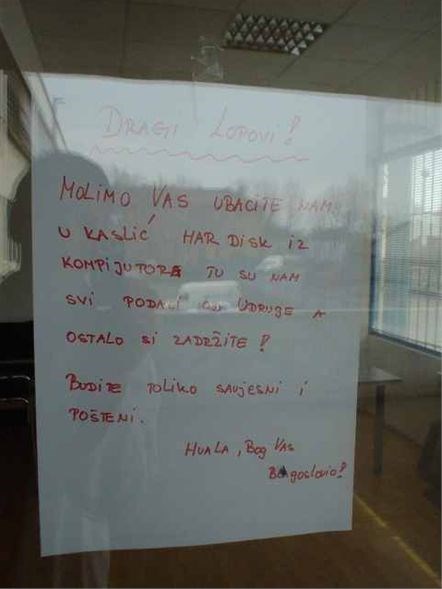 DRAGI LOPOVI!
MOLIMO VAS UBACITE NAM
U KASLIĆ HAR DISK IZ
KOMPIJUTORA TU SU NAM
SVI PODACI UDRUGE A
OSTALO SI ZADRŽITE!
BUDITE TOLIKO SAVJESNI I
POŠTENI.
HVALA, BOG VAS
BLAGOSLOVIO!